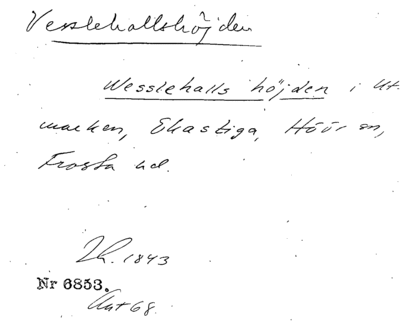 Vesslehallshöjden
Wesslehalls höjden i Ut-
marken, Ekastiga, Höör sn,
Frosta hd.
1843
Nr 6853.
68.